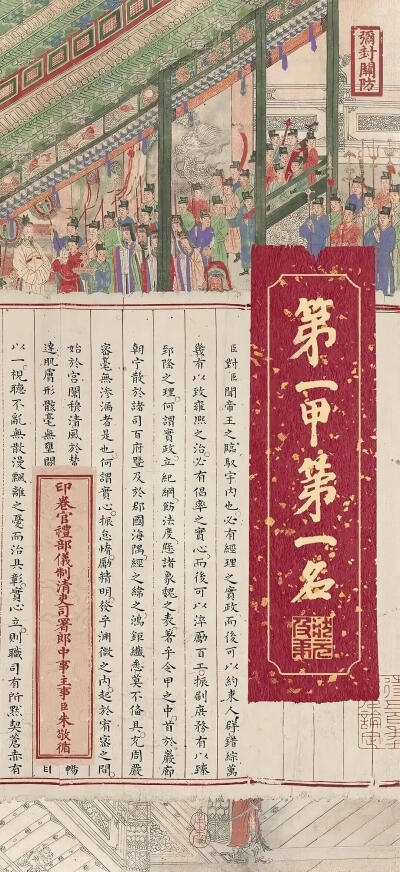 彌封關防
第一甲第一名
臣對臣聞帝王之臨馭宇內也必有經理之實政而後可以約束人群錯綜萬
幾有以致雍熙之治必有倡率之實心而後可以淬勵百工振刷庶務有以臻
郅隆之理何謂實政立紀綱飭法度懸諸象魏之表著乎令甲之中首於巖廊
朝宁散於諸司百府暨及於郡國海隅經之緯之鴻鉅纖悉莫不備具充周嚴
密毫無滲漏者是也何謂實心振怠惰勵精明發乎淵微之內起於宥密之間
始於宮闈穆清風於 暢
達肌膚形骸毫無壅閼
印卷官禮部儀制清吏司署郎中事主事臣朱敬循
以一視聽不亂無散漫飄離之憂而治具彰實心立則職司有所默契蒼赤有